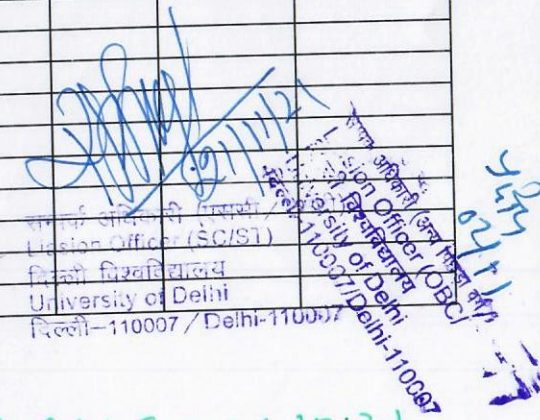 21/11/21
सम्पर्क अधिकारी (एससी /
Liasion Officer (SC/ST)
दिल्ली विश्वविद्यालय
University of Delhi
दिल्ली-110007 / Delhi-110007
सम्पर्क अधिकारी (अन्य पिछड़ा वर्ग)
Liasion Officer (OBC)
दिल्ली विश्वविद्यालय
University of Delhi
दिल्ली-110007/Delhi-110007